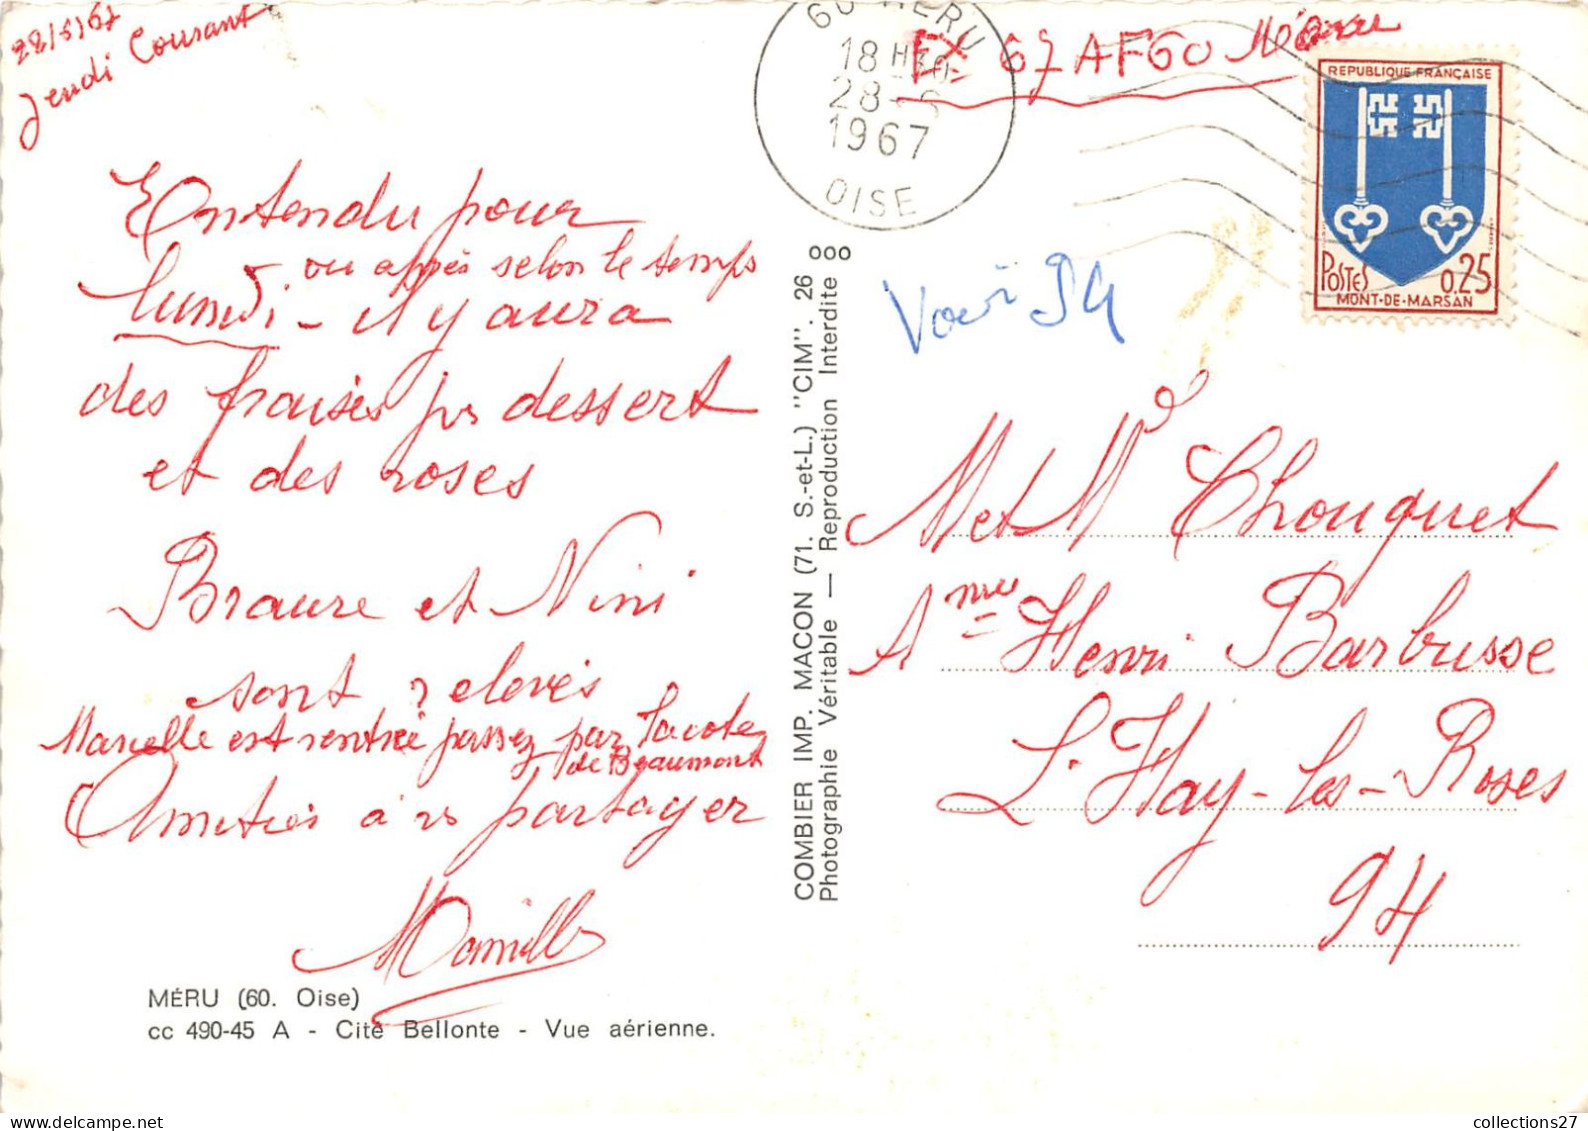 28/5/67
Jeudi Courant
60 MERU
18 H30
28-6
1967
OISE
EX 67 AF60 Méru
REPUBLIQUE FRANÇAISE
POSTES 0.25
MONT-DE-MARSAN
Entendu pour
ou après selon le temps
lundi - il y aura
des fraises pr dessert
et des roses
Braure et Nini
sont relevés
Marcelle est rentrée passez par Lacotez
de Beaumont
Amitiés à vs partager
MÉRU (60. Oise)
cc 490-45 A - Cité Bellonte - Vue aérienne.
COMBIER IMP. MACON (71. S.-et-L.) "CIM". 26
Photographie Véritable — Reproduction Interdite
ooo
Voir 94
M et Me Chouquet
Anue Henri Barbusse
L'Hay-les-Roses
94
collections27